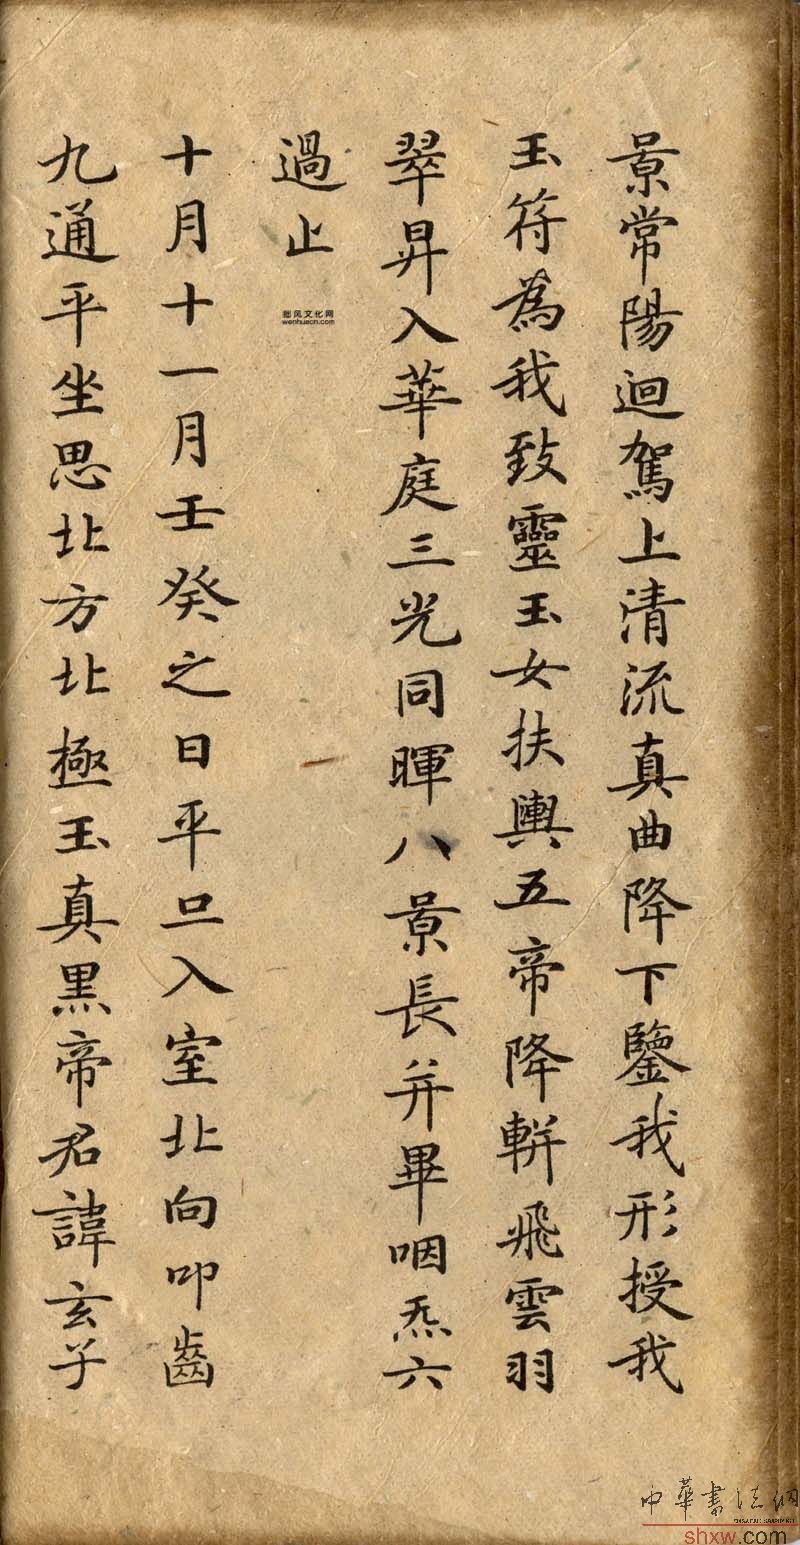 景常陽迴駕上清流真曲降下鑒我形授我
玉符為我致靈玉女扶輿五帝降軿飛雲羽
翠昇入華庭三光同暉八景長并畢咽炁六
過止
十月十一月壬癸之日平旦入室北向叩齒
九通平坐思北方北極玉真黑帝君諱玄子
wenhuacn.com
中華書法網
shxw.com